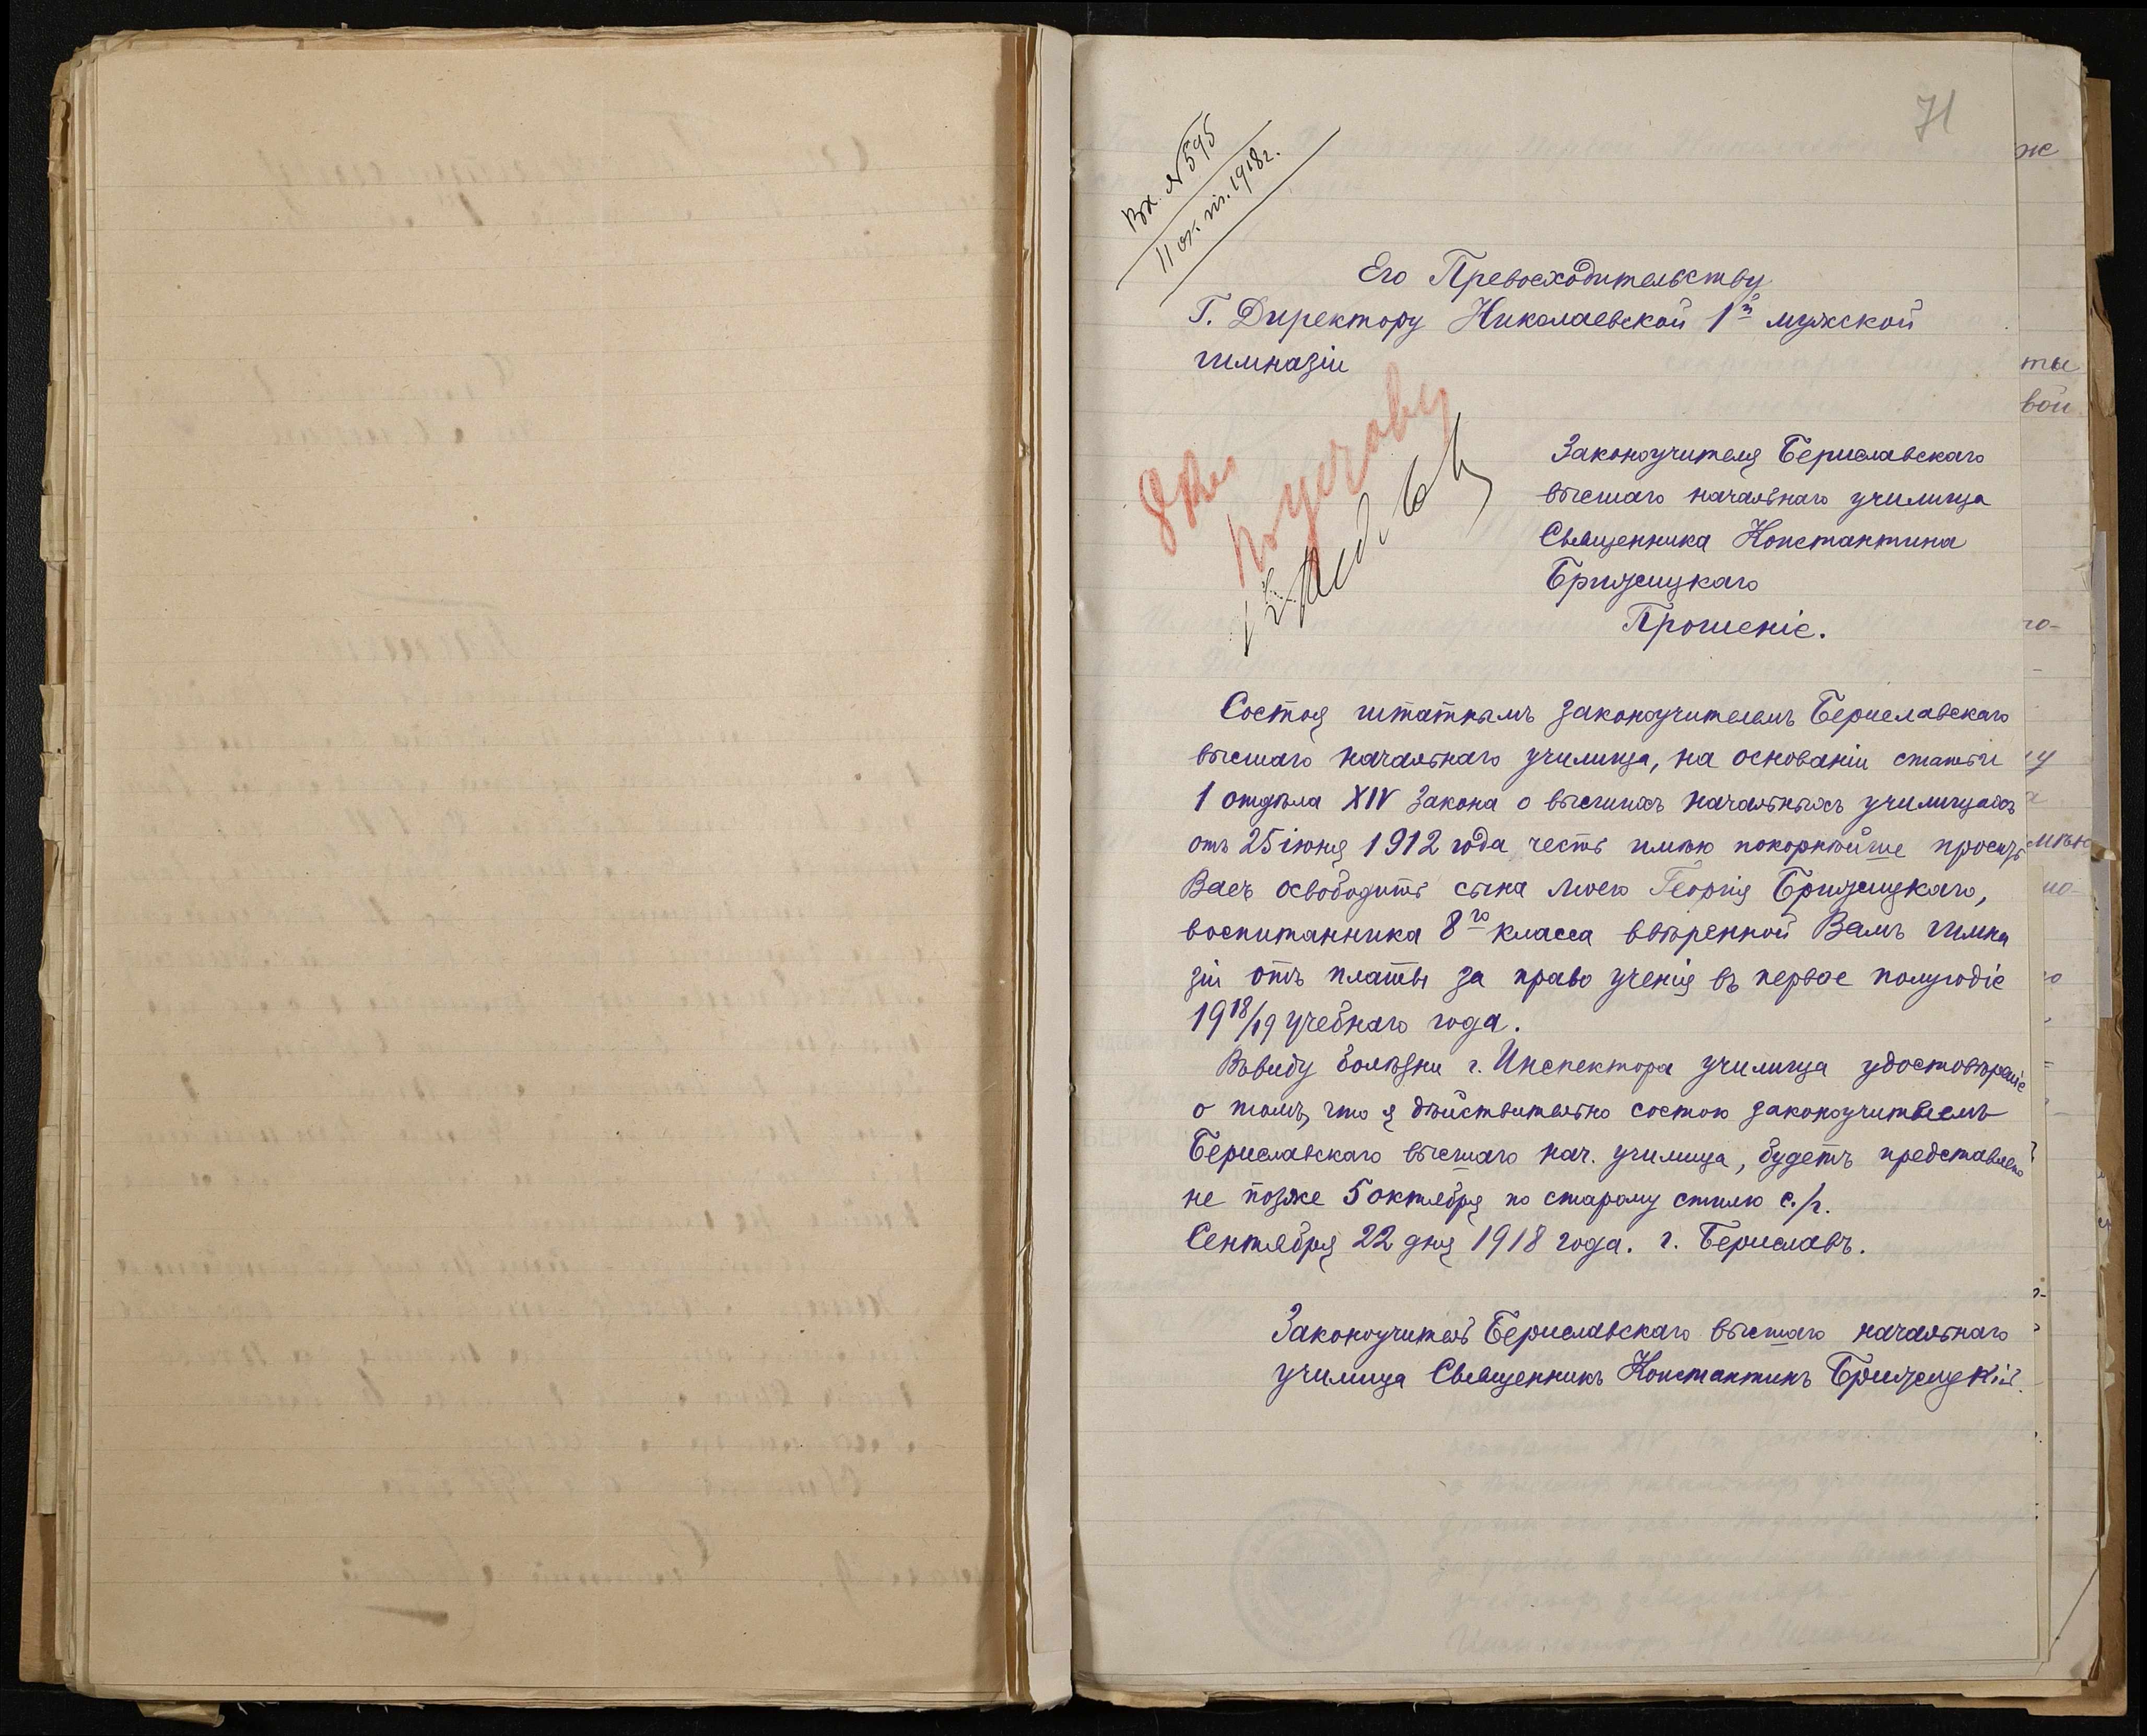 71
Вх. № 595
11 ок. н.с. 1918 г.
Его Превосходительству
Г. Директору Николаевской 1й мужской
гимназіи
Законоучителя Бериславскаго
высшаго начальнаго училища
Священника Константина
Бржезицкаго
Прошеніе.
Состоя штатнымъ законоучителемъ Бериславскаго
высшаго начальнаго училища, на основаніи статьи
1 отдѣла XIV Закона о высшихъ начальныхъ училищахъ
отъ 25 іюня 1912 года честь имѣю покорнѣйше просить
Васъ освободить сына моего Георгія Бржезицкаго,
воспитанника 8го класса ввѣренной Вамъ гимна
зіи отъ платы за право ученія въ первое полугодіе
1918/19 учебнаго года.
Въ виду болѣзни г. Инспектора училища удостовѣреніе
о томъ, что я дѣйствительно состою законоучителемъ
Бериславскаго высшаго нач. училища, будетъ представлено
не позже 5 октября по старому стилю с./г.
Сентября 22 дня 1918 года. г. Бериславъ.
Законоучитель Бериславскаго высшаго начальнаго
училища Священникъ Константинъ Бржезицкій.